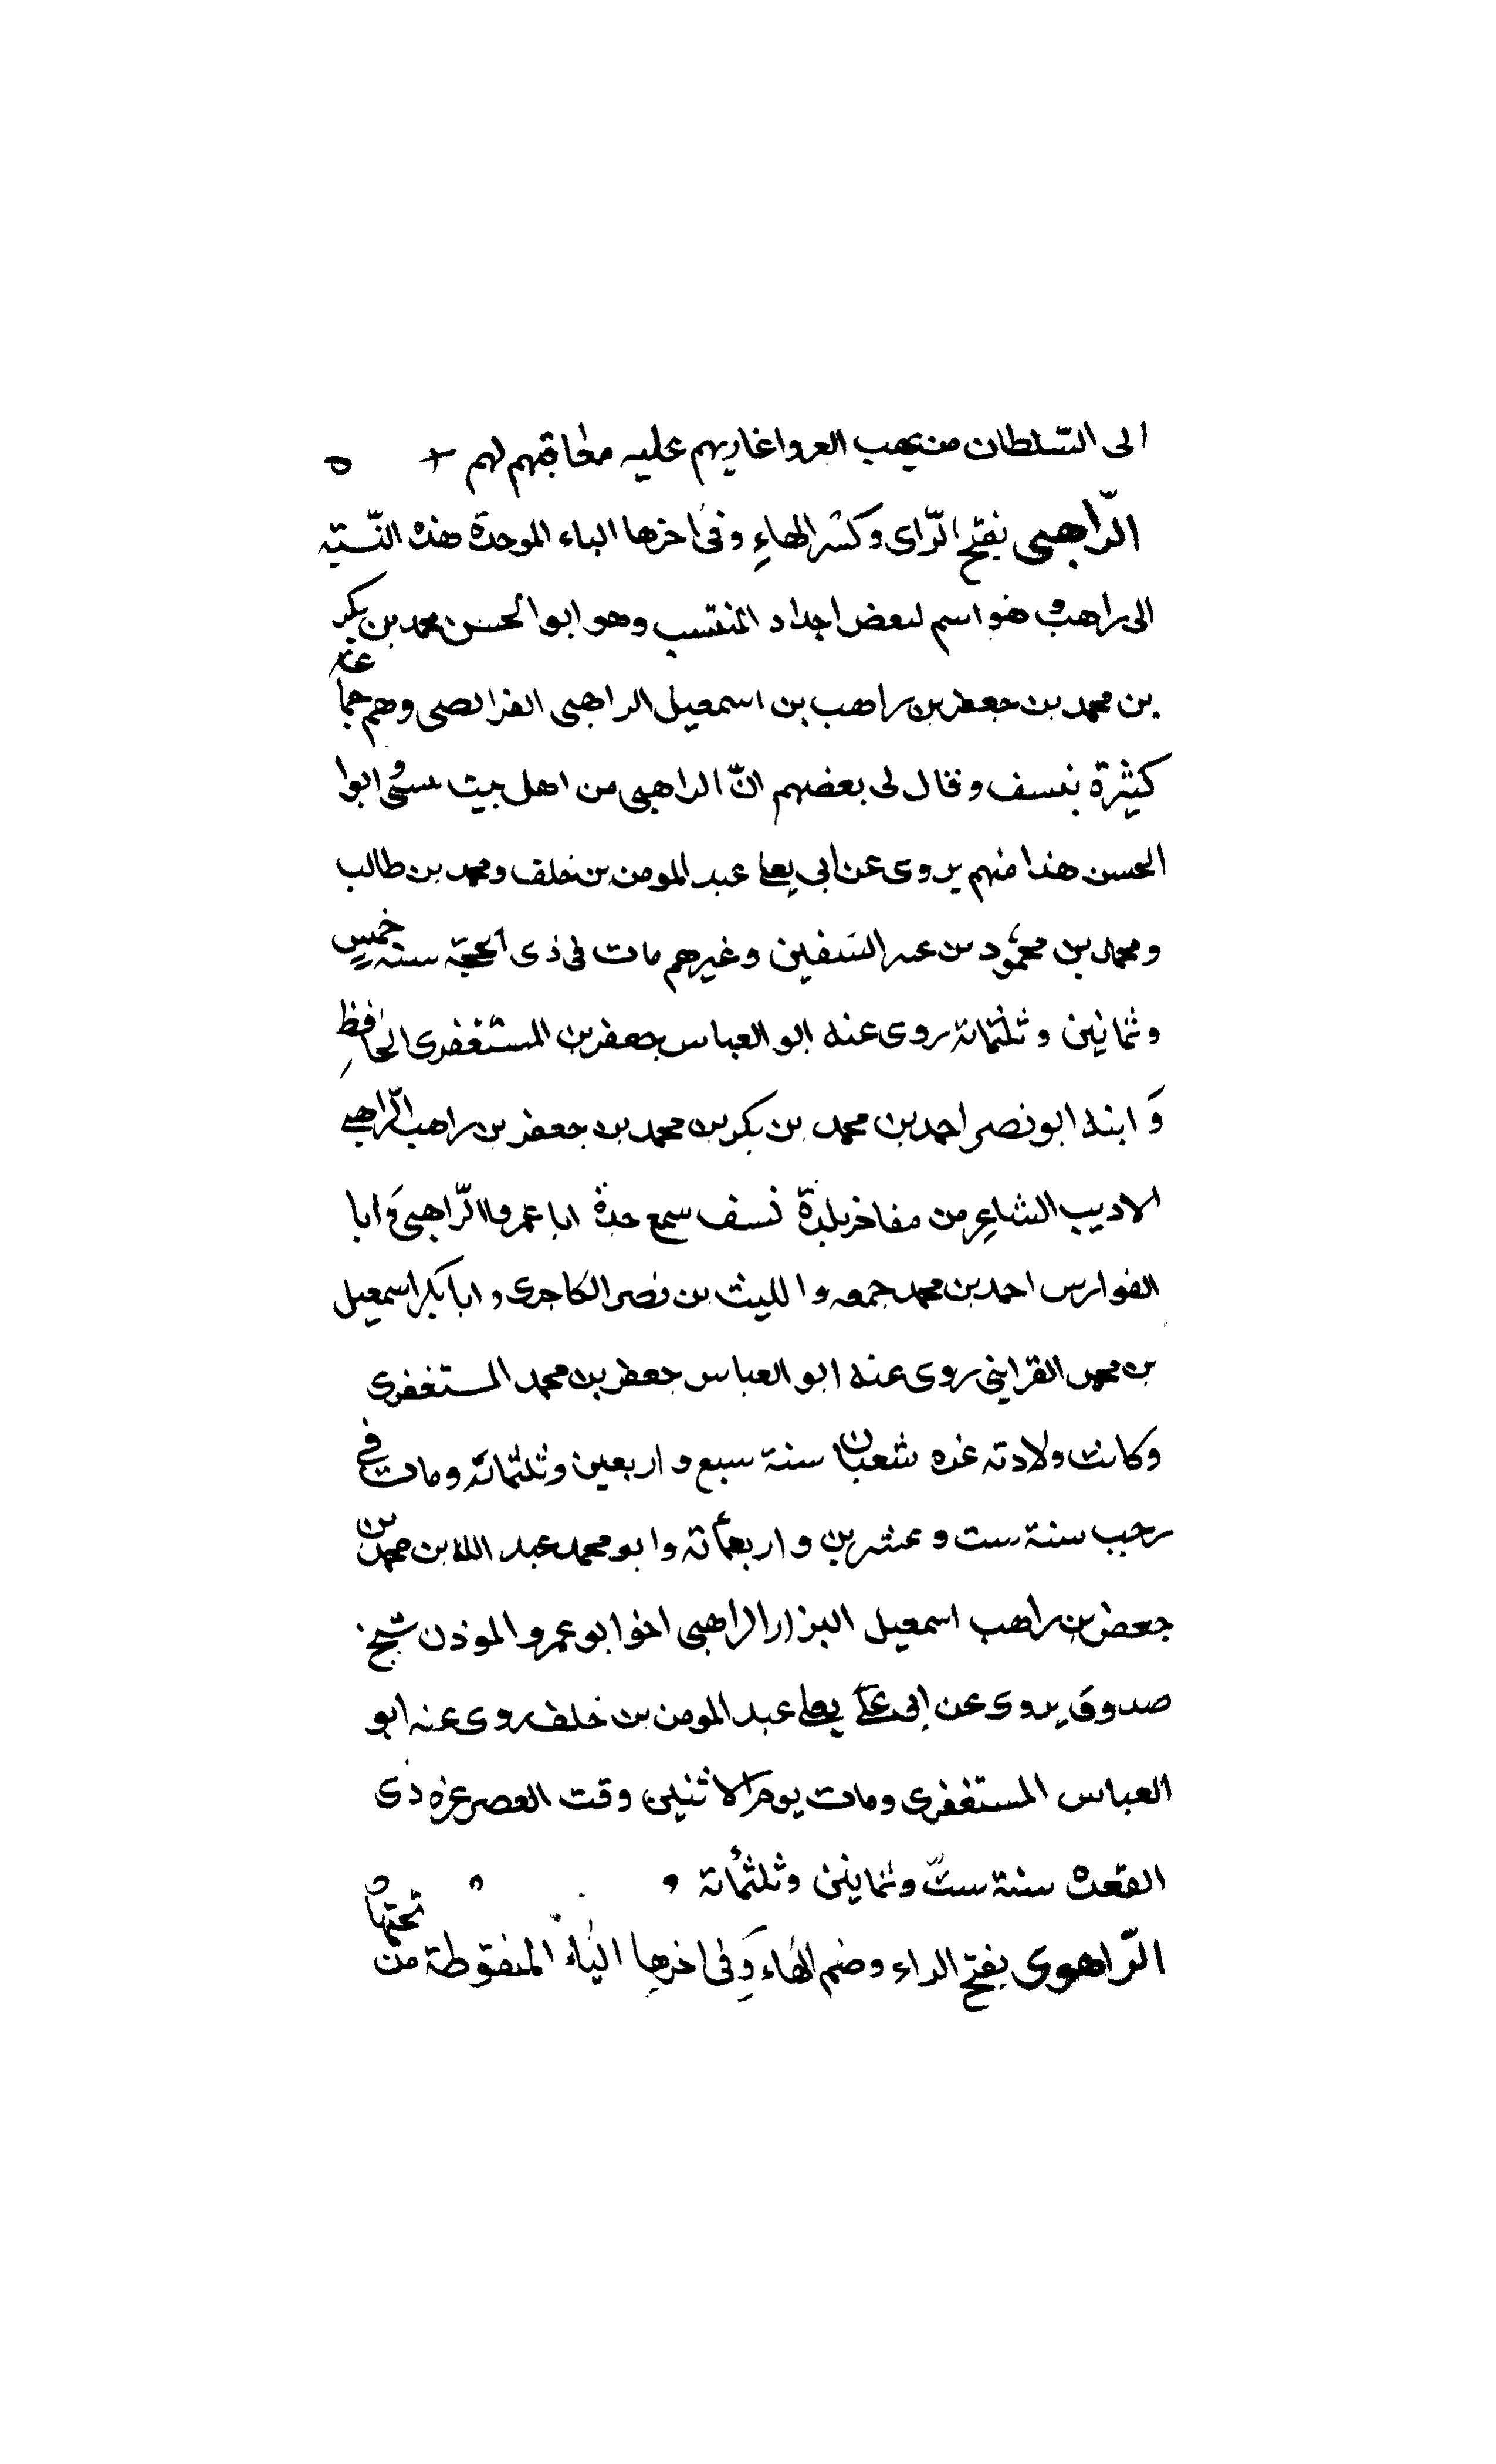 الى السّلطان من يهب العروا غاريهم عليه معاقبهم لهم
الرّاهبى بفتح الرّاى وكسر الهاءِ وفى اخرها الباء الموحدة هذه النّسبته
الى راهب وهو اسم لبعض اجداد المنتسب وهو ابو الحسن محمد بن بكر
بن محمد بن جعفر بن راهب بن اسمعيل الراهبى الفرائصى وهم جماعة
كثيرة بنسف وقال لى بعضهم انّ الراهبى من اهل بيت ابوا
الحسن هذا منهم يروى عن ابى يعلى عبد المومن بن خلف ومحمد بن طالب
ومحمد بن محمود بن عنبر السفين وغيرهم مات فى ذى الحجّة سنة خمسٍ
وثمانين وثلثمائة روى عنه ابو العباس جعفر بن المستغفرى الحافظِ
وَابنه ابو نصر احمد بن محمد بن بكر بن محمد بن جعفر بن راهب الرّاهبى
الاديب الشاعِر من مفاخر بلدة نسف سمع جدة ابا عمروا الرّاهبى وَابا
الفوارس احمد بن محمد جمعه والليث بن نصر الكاجرى وابا بكر اسمعيل
بن محمد القراينى روى عنه ابو العباس جعفر بن محمد المستغفرى
وكانت ولادته غره شعبان سنة سبع واربعين وثلثمائة ومات فى
رجب سنة ست وعشرين واربعمأئة وابو محمد عبد الله بن محمد بن
جعفر بن راهب اسمعيل البزار الراهبى اخو ابو عمرو الموذن شيخ
صدوق يروى عن ابى على يعلى عبد المومن بن خلف روى عنه ابو
العباس المستغفرى ومات يوم الاثنين وقت العصر غره ذى
القعده سنة ستّ وثمانين وثلثمأئة
الرّاهوى بفتح الراء وضم الهاء وَفى اخرها الياء المنقوطة من تحتها